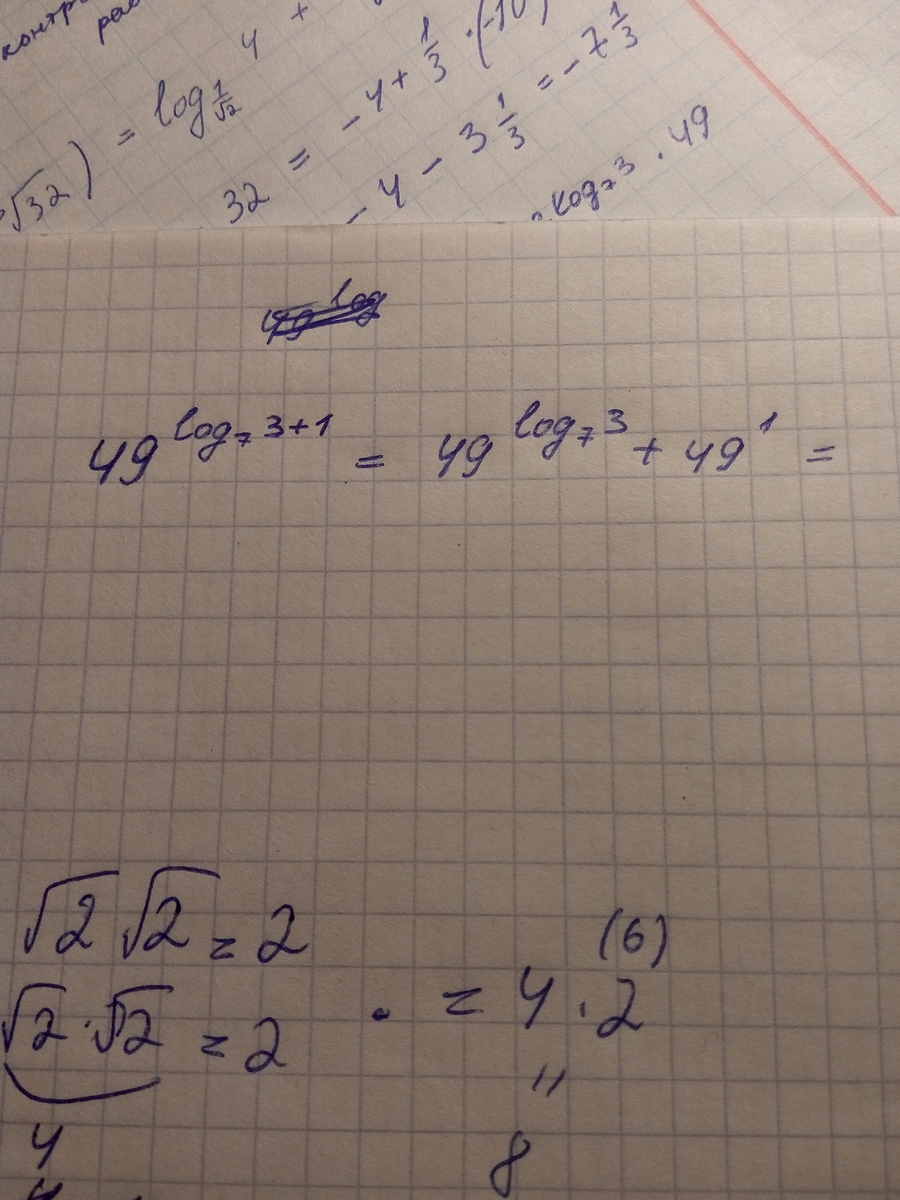 контр
рас
√32) = log 1/√2 4 +
32 = -4 + 1/3 · (-10)
-4 - 3 1/3 = -7 1/3
log₇3 · 49
49^(log₇ 3+1) = 49^(log₇ 3) + 49^1 =
√2 √2 = 2
(6)
√2 · √2 = 2 · = 4 · 2
"
4
8